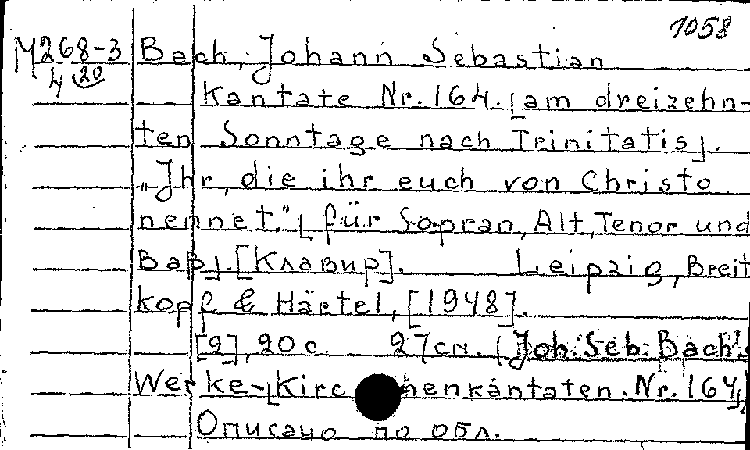 1058
M268-3 Bach, Johann Sebastian
4 20
Kantate Nr. 164. [am dreizehn-
ten Sonntage nach Trinitatis].
"Ihr, die ihr euch von Christo
nennet." [für Sopran, Alt, Tenor und
Baß]. [Клавир]. Leipzig, Breit
kopf & Härtel, [1948].
[2], 20 с. 27 см. (Joh. Seb. Bach's
Werke-[Kirchenkantaten. Nr. 164])
Описано по обл.